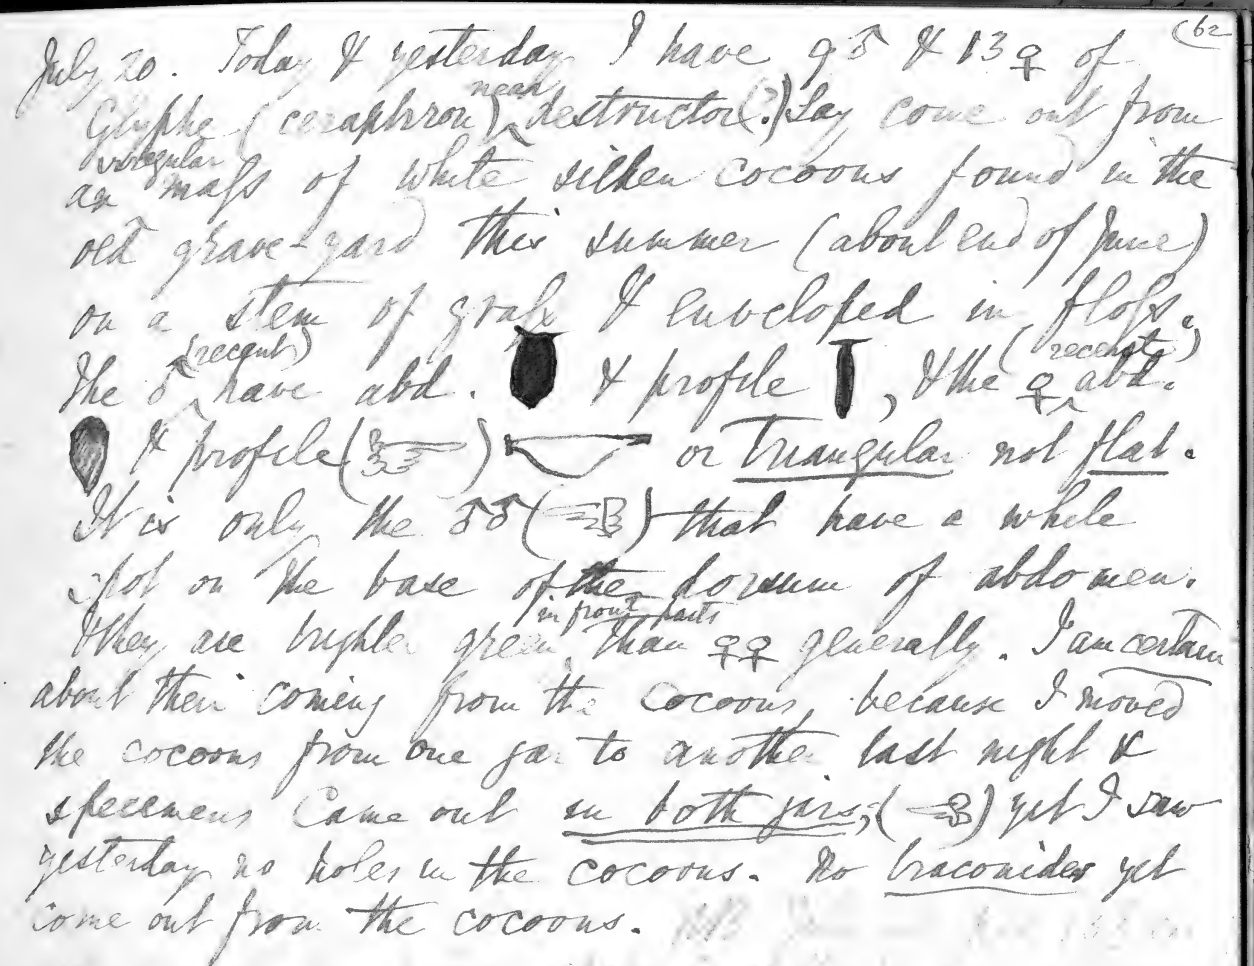 (62
July 20. Today & yesterday I have 9♂ & 13♀ of
Glyphe (ceraphron) near destructor(?) Say come out from
an irregular maſs of white silken cocoons found in the
old grave-yard this summer (about end of June)
on a stem of graſs & enveloped in floſs.
The ♂ (recent) have abd. & profile , & the ♀ (recent) abd.
& profile ( ) or triangular not flat.
It is only the ♂♂ ( ) that have a white
spot on the base of the dorsum of abdomen.
They are brighter green in front parts than ♀♀ generally. I am certain
about their coming from the cocoons, because I moved
the cocoons from one jar to another last night &
specimens came out in both jars; ( ) yet I saw
yesterday no holes in the cocoons. No braconides yet
come out from the cocoons. NB